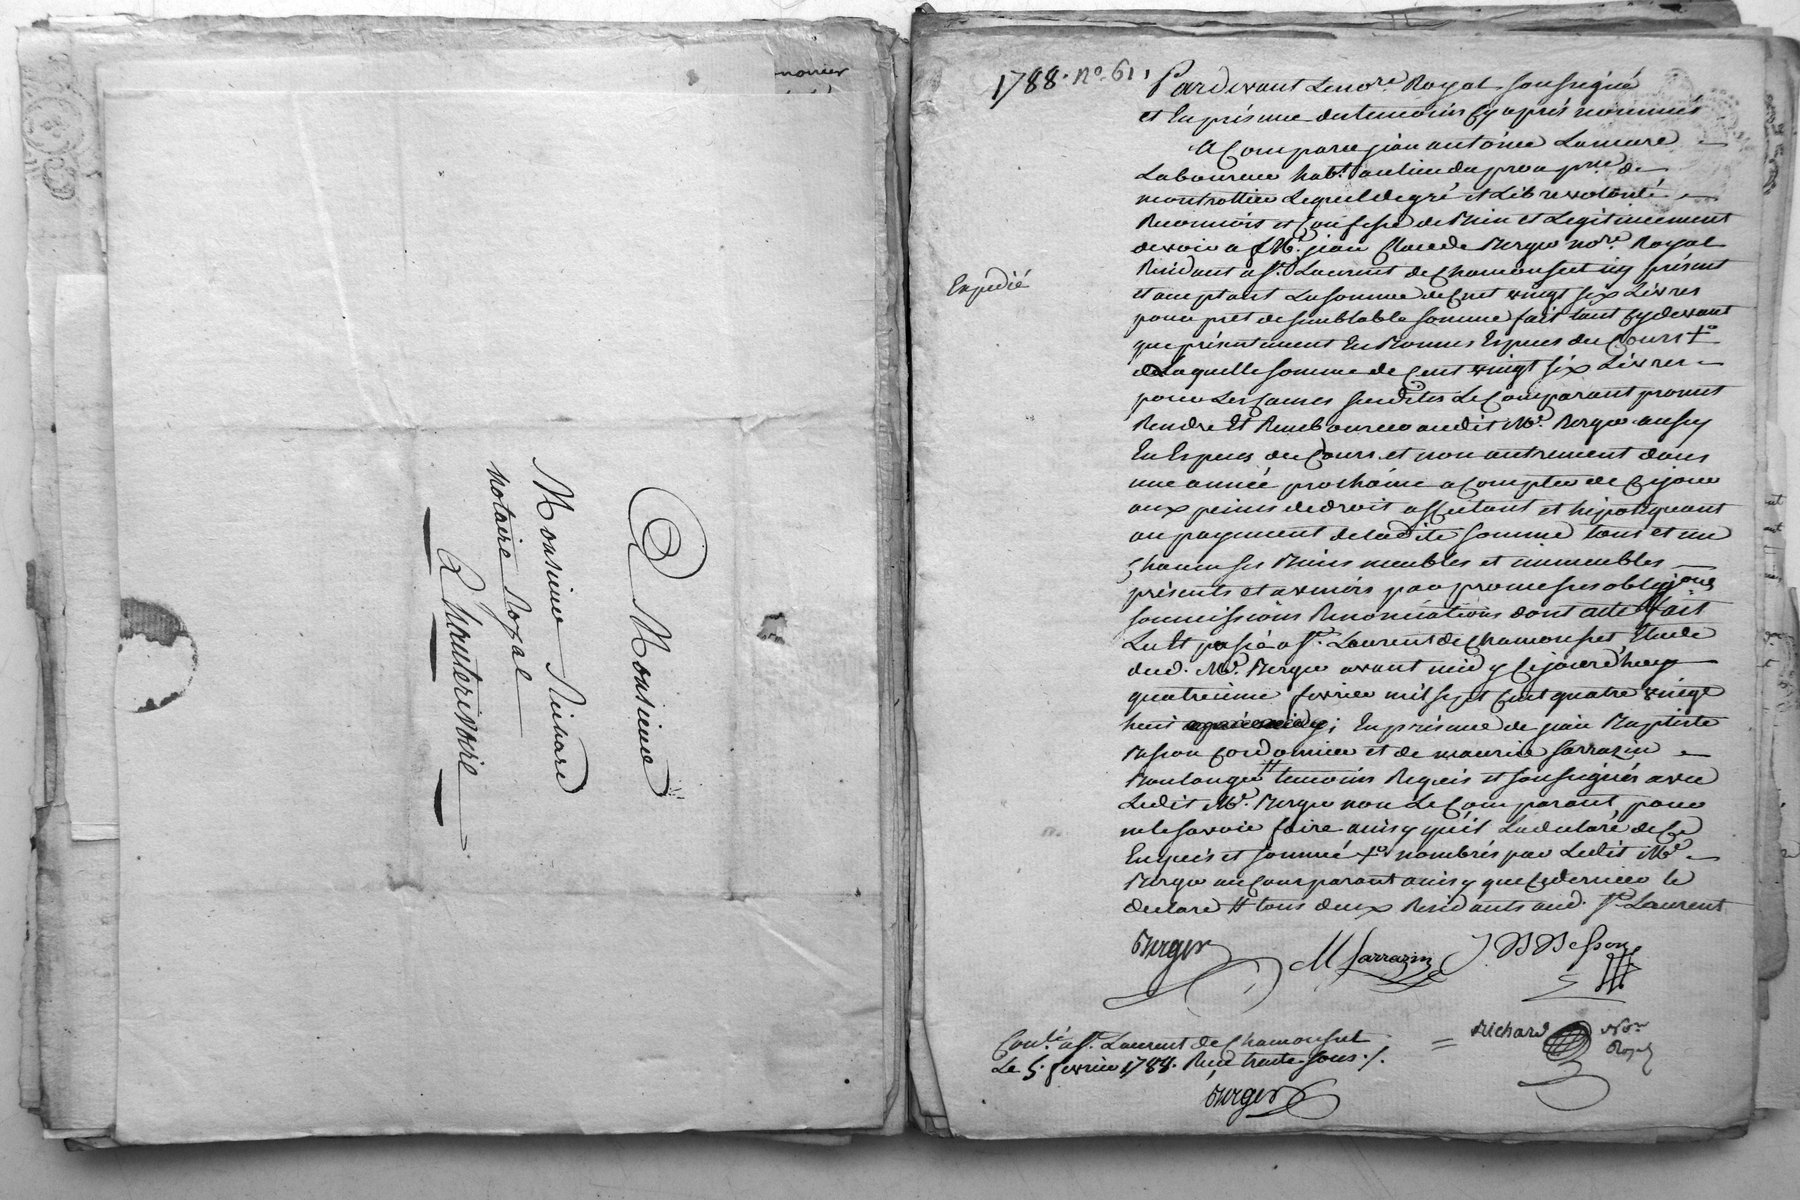 A Monsieur
Monsieur Richard
notaire Royal
A hauterivoire
1788. no. 61.
Expedié
Pardevant Le nore. Royal soussigné
et En présence des temoins Cy après nommés
a Comparu jean antoine Lamure
Laboureur habt. au lieu du prse. de
montrottier Lequel de gré et Libre volonté
Reconnoit et Confesse de Bien et Legitimement
devoir a Me. jean Claude Burger nore. Royal
Résidant a St. Laurent de Chamousset icy présent
et aceptant La somme de Cent vingt six Livres
pour pret de semblable somme fait tant Cy devant
que présentement En Bonnes Especes du Cours +o
de Laquelle somme de Cent vingt six Livres
pour Les Causes susdites Le Comparant promet
Rendre Et Rembourcer audit Me. Burger aussy
En Espece du Cours et non autrement dans
une année prochaine a Compter de Ce jour
aux peines de droit affectant et hipotequant
au payement de ladite somme tous et un
Chacun ses Biens meubles et immeubles
présents et avenirs par promesses obligaons
soumissions Renonciations dont acte fait
Lu Et passé a St. Laurent de Chamousset Etude
dud. Me. Burger avant midy Ce jourd'huy
quatrieme fevrier mil sept Cent quatre vingt
huit aprés midy; En présence de jean Baptiste
Besson Cordonnier et de maurice Sarrazin
Boulanger # temoins Requis et soussignés avec
Ledit Me. Burger non Le Comparant pour
ne le savoir faire ainsy qu'il La declaré de Ce
Enquis et sommé +o nombrés par Ledit Me.
Burger au Comparant ainsy que Ce dernier le
declare # tous deux Residants aud. St. Laurent
Burger M Sarrazin J. B Besson
Conlé. a St. Laurent de Chamousset
Le 5. fevrier 1788. Reçu trente sous ./.
Burger
= Richard Nore
Royal